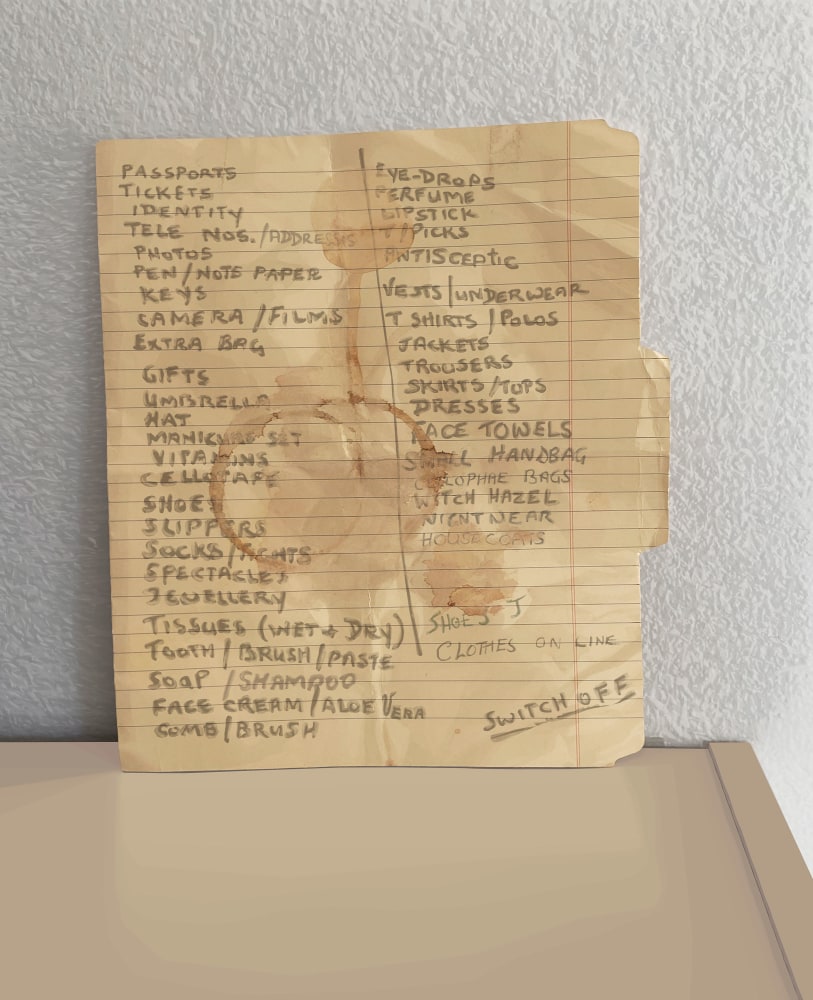 PASSPORTS
TICKETS
IDENTITY
TELE NOS./ADDRESSES
PHOTOS
PEN/NOTE PAPER
KEYS
CAMERA/FILMS
EXTRA BAG
GIFTS
UMBRELLA
HAT
MANICURE SET
VITAMINS
CELLOTAPE
SHOES
SLIPPERS
SOCKS/TIGHTS
SPECTACLES
JEWELLERY
TISSUES (WET + DRY)
TOOTH/BRUSH/PASTE
SOAP/SHAMPOO
FACE CREAM/ALOE VERA
COMB/BRUSH
EYE-DROPS
PERFUME
LIPSTICK
T/PICKS
ANTISCEPTIC
VESTS/UNDERWEAR
T SHIRTS/POLOS
JACKETS
TROUSERS
SKIRTS/TOPS
DRESSES
FACE TOWELS
SMALL HANDBAG
BAGS
WITCH HAZEL
NIGHTWEAR
HOUSECOATS
SHOES J
CLOTHES ON LINE
SWITCH OFF